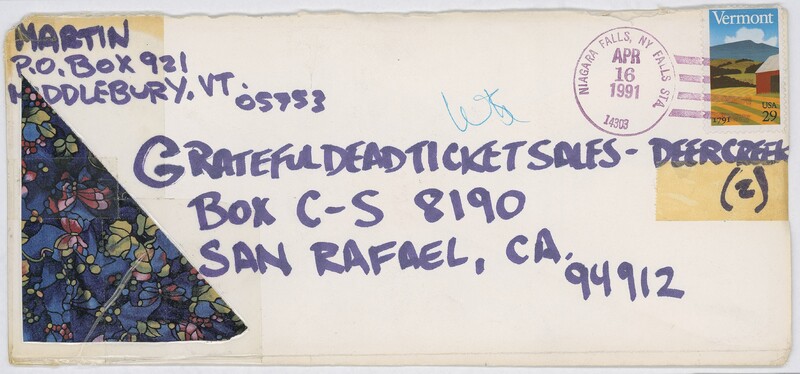 MARTIN
P.O. BOX 921
MIDDLEBURY, VT.
05753
NIAGARA FALLS, NY FALLS STA.
APR
16
1991
14303
Vermont
1791
USA
29
GRATEFUL DEAD TICKET SALES - DEER CREEK
(2)
BOX C-S 8190
SAN RAFAEL, CA.
94912